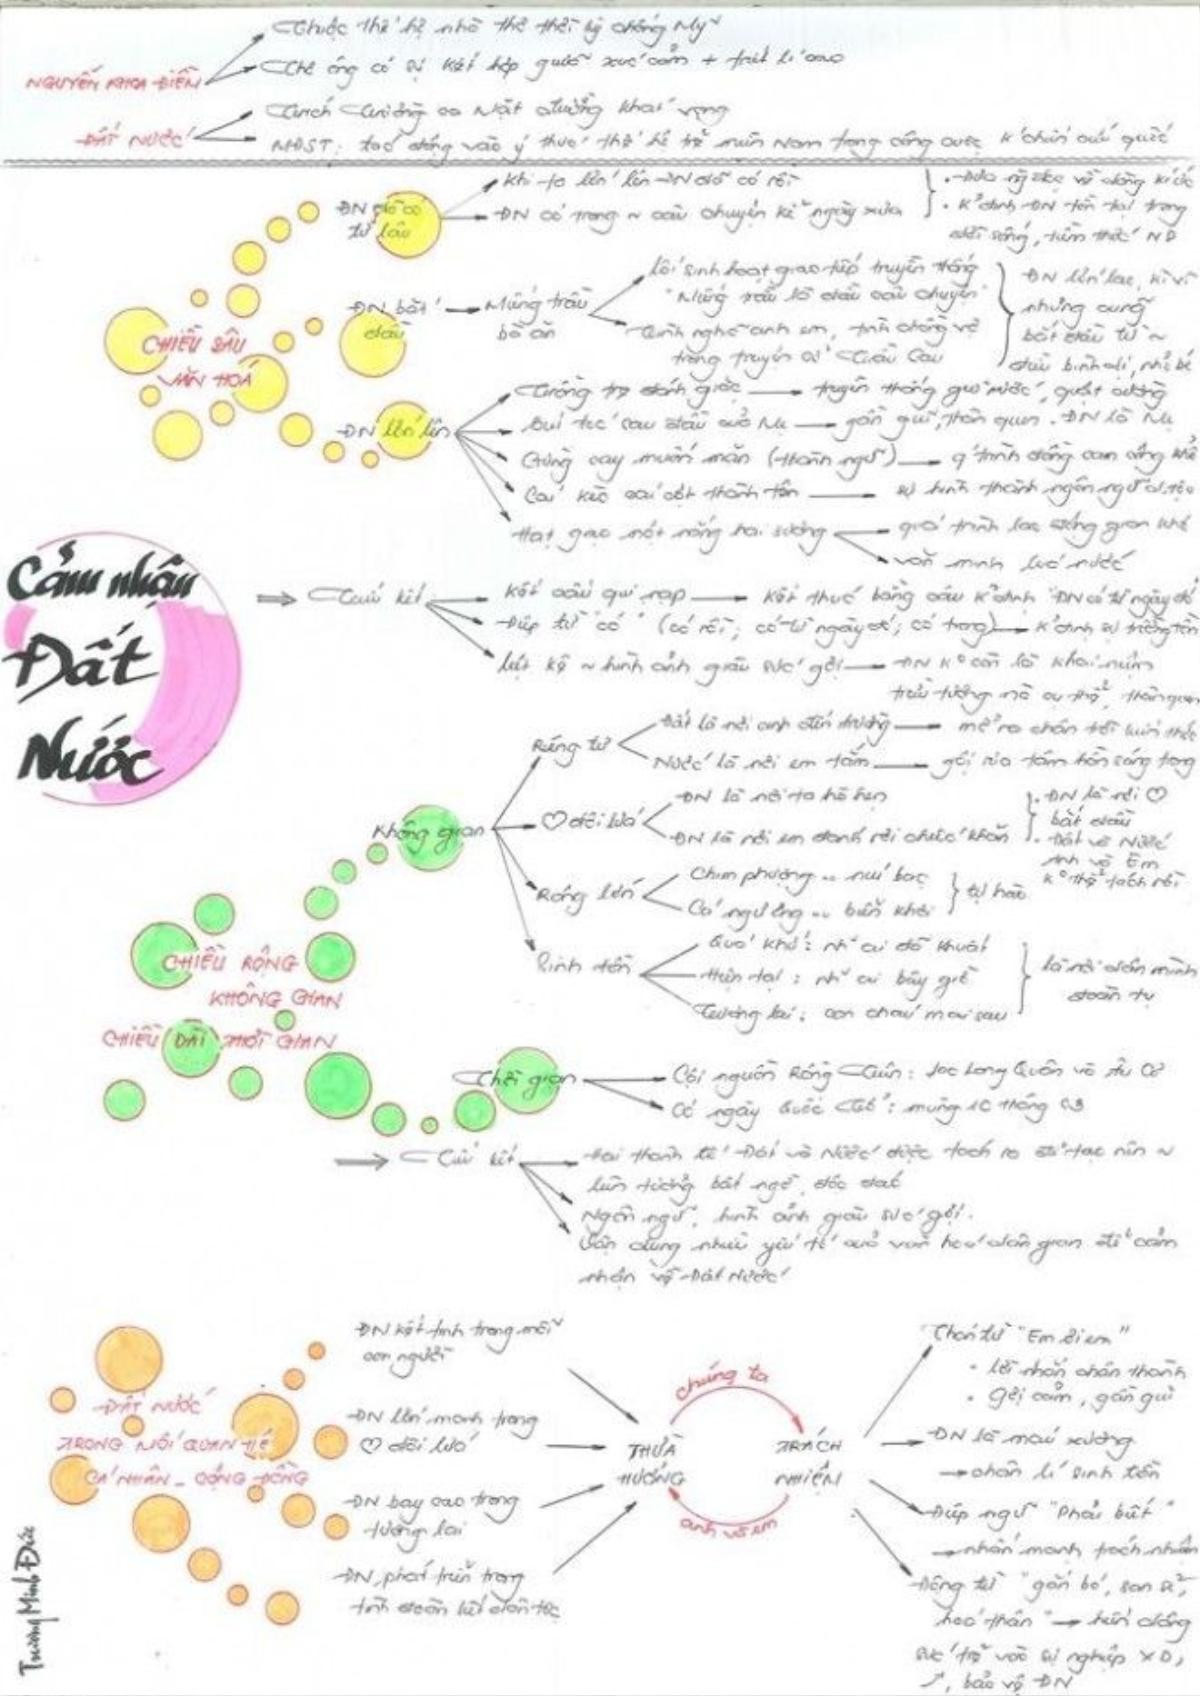 NGUYỄN KHOA ĐIỀM
Thuộc thế hệ nhà thơ thời kỳ chống Mỹ
Thơ ông có sự kết hợp giữa xúc cảm + triết lí
ĐẤT NƯỚC
Trích Trường ca Mặt đường khát vọng
tác động vào ý thức thế hệ trẻ miền Nam trong công cuộc k'chiến cứu quốc
CHIỀU SÂU
VĂN HOÁ
ĐN đã có
từ lâu
Khi ta lớn lên ĐN đã có rồi
ĐN có trong ~ câu chuyện kể ngày xưa
• Đưa ng' đọc về dòng kí ức
• K'định ĐN tồn tại trong
đời sống, tiềm thức ND
ĐN bắt
đầu
Miếng trầu
bà ăn
lối sinh hoạt giao tiếp truyền thống
"Miếng trầu là đầu câu chuyện"
Tình nghĩa anh em, tình chồng vợ
trong truyện cổ Trầu Cau
ĐN lớn lao, kì vĩ
nhưng cũng
bắt đầu từ ~
điều bình dị, nhỏ bé
ĐN lớn lên
Trồng tre đánh giặc → truyền thống giữ nước, quật cường
búi tóc sau đầu của Mẹ → gần gũi, thân quen. ĐN là Mẹ
Gừng cay muối mặn (thành ngữ) →
Cái kèo cái cột thành tên → sự hình thành ngôn ngữ d.tộc
Hạt gạo một nắng hai sương
quá trình lao động gian khó
văn minh lúa nước
Cảm nhận
Đất
Nước
⇒ Tiểu kết
Kết cấu qui nạp → Kết thúc bằng câu k'định "ĐN có từ ngày đó"
Điệp từ "có" (có rồi; có từ ngày đó; có trong) → k'định sự trường tồn
liệt kê ~ hình ảnh giàu sức gợi → ĐN k° còn là khái niệm
trừu tượng mà cụ thể, thân quen
Không gian
Riêng tư
Đất là nơi anh đến trường → mở ra chân trời kiến thức
Nước là nơi em tắm → gợi ra tâm hồn sáng trong
♡ đôi lứa
ĐN là nơi ta hò hẹn
ĐN là nơi em đánh rơi chiếc khăn
• ĐN là nơi ♡
bắt đầu
• Đất và Nước
Anh và Em
k° thể tách rời
Rộng lớn
Chim phượng .. núi bạc
Cá ngư ông .. biển khơi
tự hào
Sinh tồn
Quá khứ: nh~ ai đã khuất
Hiện tại: nh~ ai bây giờ
Tương lai: con cháu mai sau
là nơi dân mình
đoàn tụ
CHIỀU RỘNG
KHÔNG GIAN
CHIỀU DÀI THỜI GIAN
Thời gian
Cội nguồn Rồng Tiên: Lạc Long Quân và Âu Cơ
Có ngày Quốc Tổ: mùng 10 tháng 03
⇒ Tiểu kết
Hai thành tố Đất và Nước được tách ra để tạo nên ~
liên tưởng bất ngờ, độc đáo
Ngôn ngữ, hình ảnh giàu sức gợi.
Vận dụng nhiều yếu tố của văn học dân gian để cảm
nhận về Đất Nước
ĐẤT NƯỚC
TRONG MỐI QUAN HỆ
CÁ NHÂN - CỘNG ĐỒNG
ĐN kết tinh trong mỗi
con người
ĐN lớn mạnh trong
♡ đôi lứa
ĐN bay cao trong
tương lai
ĐN phát triển trong
tinh đoàn kết dân tộc
THỪA
HƯỞNG
chúng ta
anh và em
TRÁCH
NHIỆM
Thán từ "Em ơi em"
• lời nhắn chân thành
• gợi cảm, gần gũi
ĐN là máu xương
→ chân lí sinh tồn
Điệp ngữ "Phải biết"
→ nhấn mạnh trách nhiệm
Động từ "gắn bó, san sẻ,
hoá thân" → hiến dâng
sức trẻ vào sự nghiệp XD,
↗, bảo vệ ĐN
Trương Minh Đức